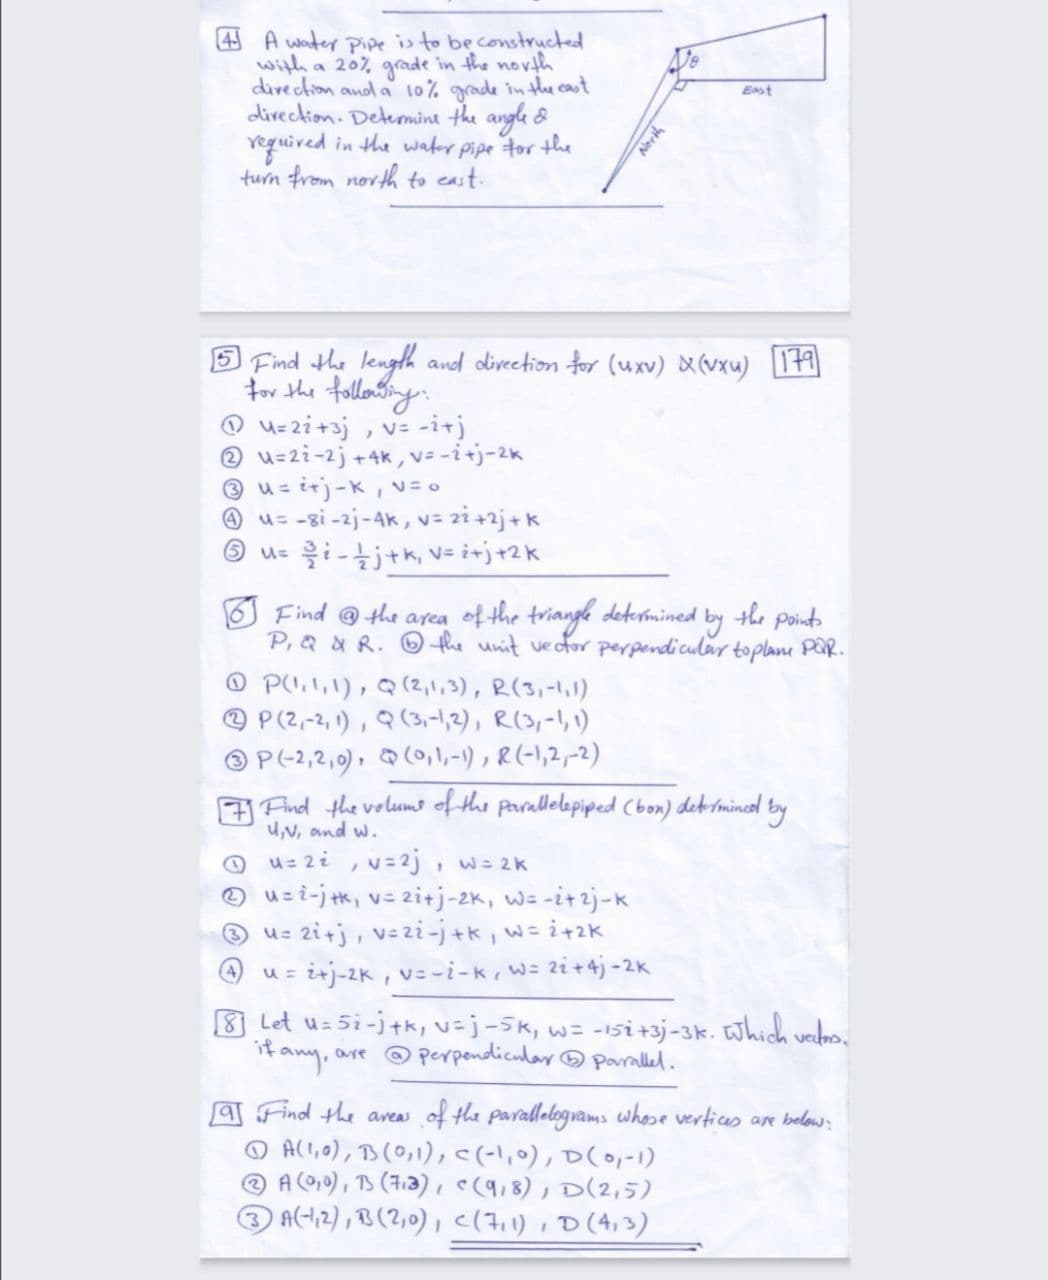 4 A water pipe is to be constructed
with a 20% grade in the north
direction and a 10% grade in the east
direction. Determine the angle θ
required in the water pipe for the
turn from north to east.
θ
East
North
5 Find the length and direction for (u×v) & (v×u) 179
for the following:
① u=2i+3j , v= -i+j
② u=2i-2j+4k, v=-i+j-2k
③ u= i+j-k , v=0
④ u= -8i-2j-4k, v= 2i+2j+k
⑤ u= 3/2 i - 1/2 j+k, v= i+j+2k
6 Find ⓐ the area of the triangle determined by the points
P, Q & R. ⓑ the unit vector perpendicular to plane PQR.
① P(1,1,1), Q(2,1,3), R(3,-1,1)
② P(2,-2,1), Q(3,-1,2), R(3,-1,1)
③ P(-2,2,0), Q(0,1,-1), R(-1,2,-2)
7 Find the volume of the parallelepiped (box) determined by
u,v, and w.
① u=2i , v=2j , w=2k
② u=i-j+k, v=2i+j-2k, w=-i+2j-k
③ u= 2i+j, v=2i-j+k, w= i+2k
④ u= i+j-2k, v=-i-k, w= 2i+4j-2k
8 Let u=5i-j+k, v=j-5k, w= -15i+3j-3k. Which vectors,
if any, are ⓐ perpendicular ⓑ parallel.
9 Find the areas of the parallelograms whose vertices are below:
① A(1,0), B(0,1), C(-1,0), D(0,-1)
② A(0,0), B(7,3), C(9,8), D(2,5)
③ A(-1,2), B(2,0), C(7,1), D(4,3)